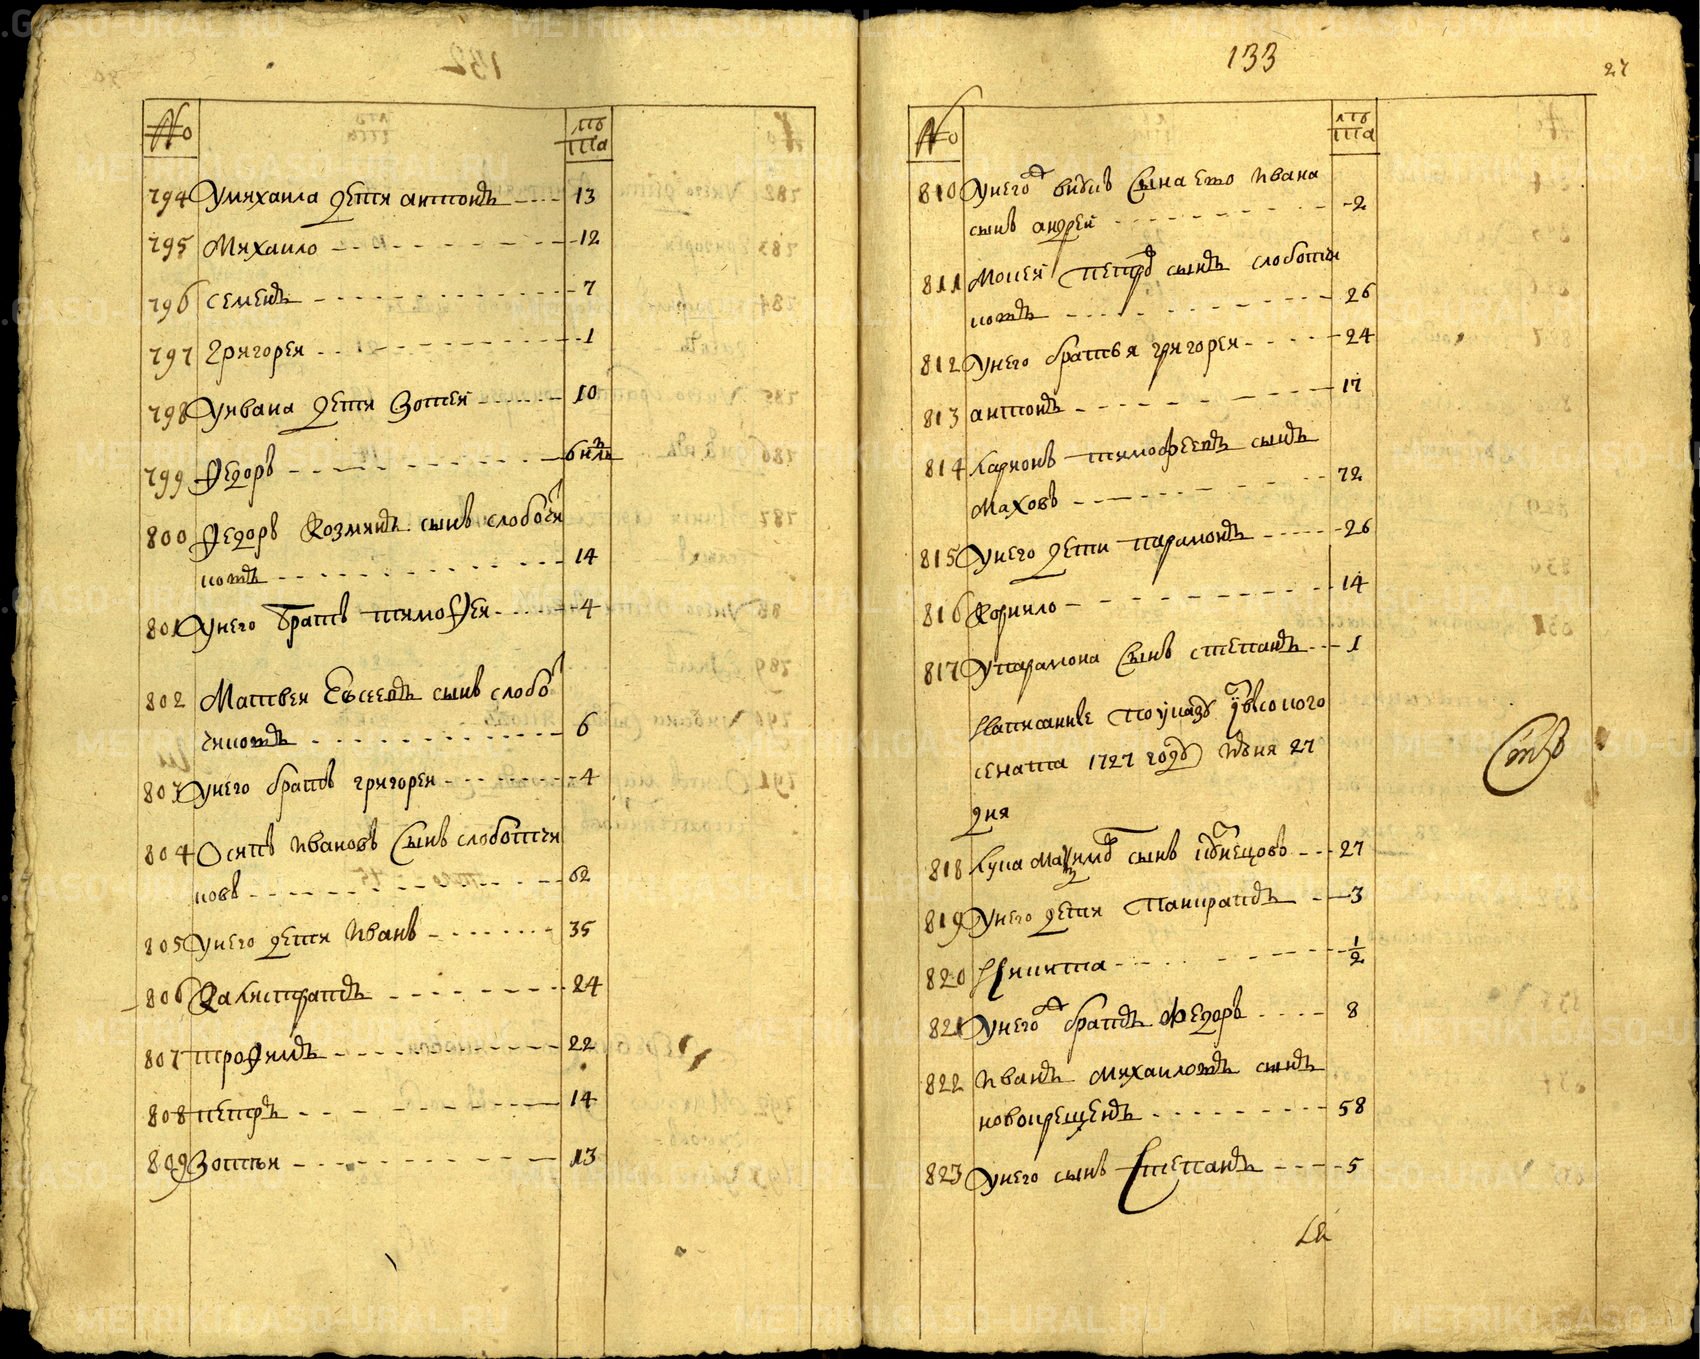 №
лѣ
та
794 У михаила дети антонъ 13
795 Михаило 12
796 семенъ 7
797 Григореи 1
798 У ивана дети Зотеи 10
799 Федоръ 6 нлъ
800 Федоръ Козминъ сынъ слобочи
ковъ 14
801 У него братъ тимофеи 4
802 Матвеи Евсеевъ сынъ слобо
чиковъ 6
803 У него братъ григореи 4
804 Осипъ Ивановъ Сынъ слоботчи
ковъ 62
805 У него дети Иванъ 35
806 Калистратъ 24
807 трофимъ 22
808 петръ 14
809 Зотеи 13
133
27
№
лѣ
та
810 У него сына ево Ивана
сынъ андреи 2
811 Моисеи петровъ сынъ слоботчи
ковъ 26
812 У него братья григореи 24
813 антонъ 17
814 Ларионъ тимофеевъ сынъ
Маховъ 72
815 У него дети парамонъ 26
816 Корнило 14
817 У парамона Сынъ степанъ 1
Написанные по указу
сената 1727 году Июня 27
дня
818 Лука сынъ кузнецовъ 27
819 У него дети Панкратъ 3
820 Никита 1/2
821 У него братъ федоръ 8
822 Иванъ михаиловъ сынъ
новокрещенъ 58
823 У него сынъ Степанъ 5